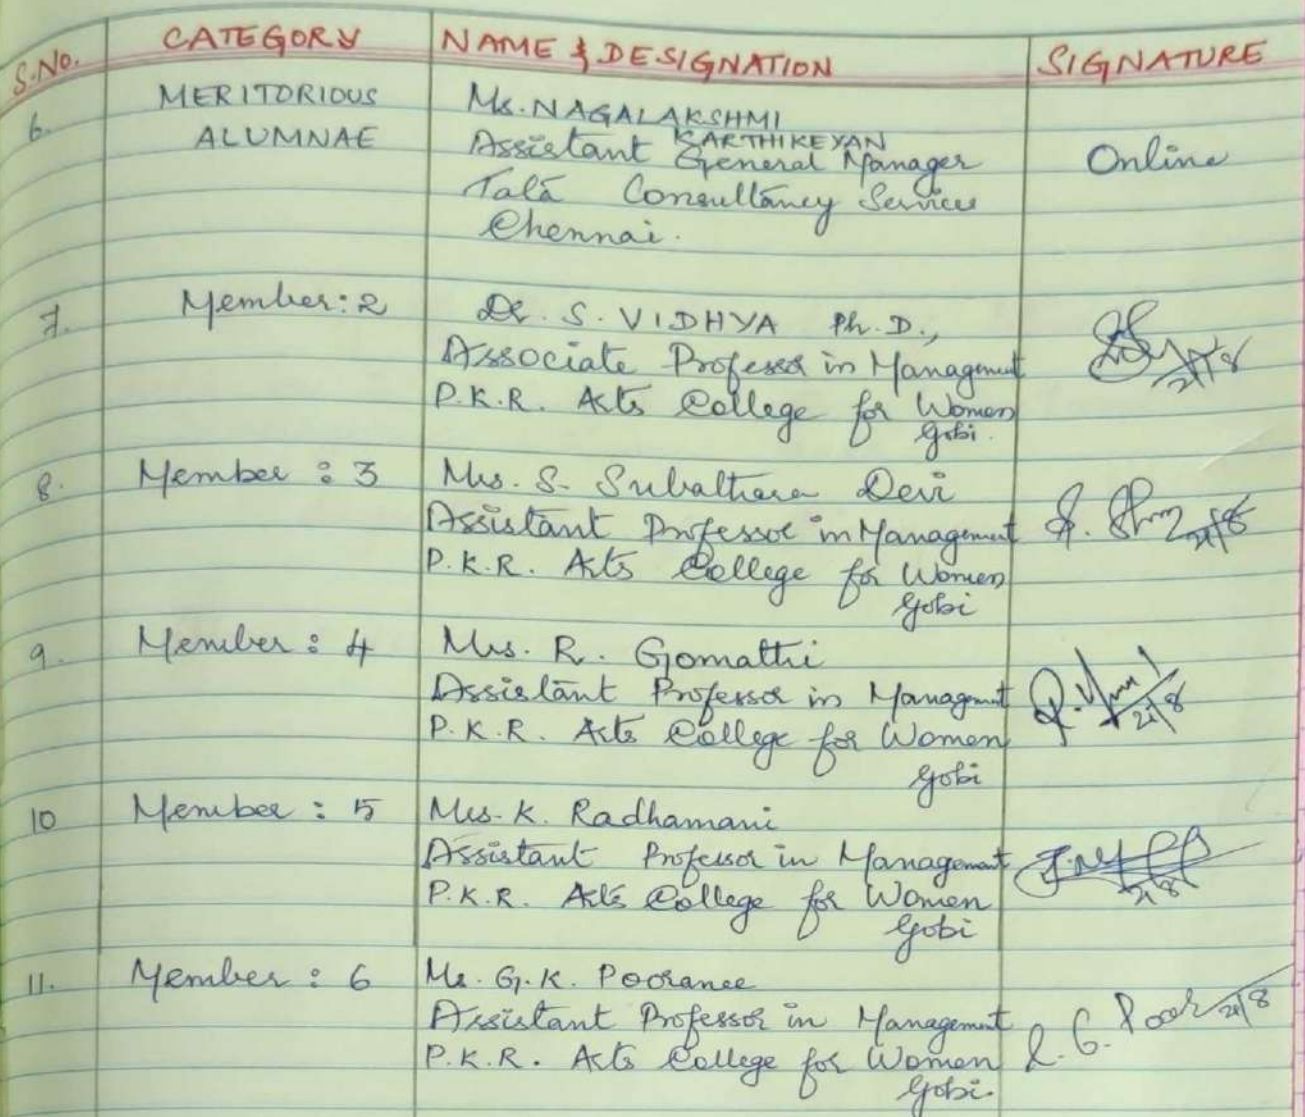 S.No. CATEGORY NAME & DESIGNATION SIGNATURE
6. MERITORIOUS Ms. NAGALAKSHMI
ALUMNAE KARTHIKEYAN
Assistant General Manager Online
Tata Consultancy Services
Chennai.
7. Member: 2 Dr. S. VIDHYA Ph.D.,
Associate Professor in Management 21/8
P.K.R. Arts College for Women
Gobi.
8. Member : 3 Mrs. S. Subalthara Devi
Assistant Professor in Management 21/8
P.K.R. Arts College for Women
Gobi
9. Member : 4 Mrs. R. Gomathi
Assistant Professor in Management 21/8
P.K.R. Arts College for Women
Gobi
10 Member : 5 Mrs. K. Radhamani
Assistant Professor in Management 21/8
P.K.R. Arts College for Women
Gobi
11. Member : 6 Ms. G.K. Pooranee
Assistant Professor in Management 21/8
P.K.R. Arts College for Women
Gobi.